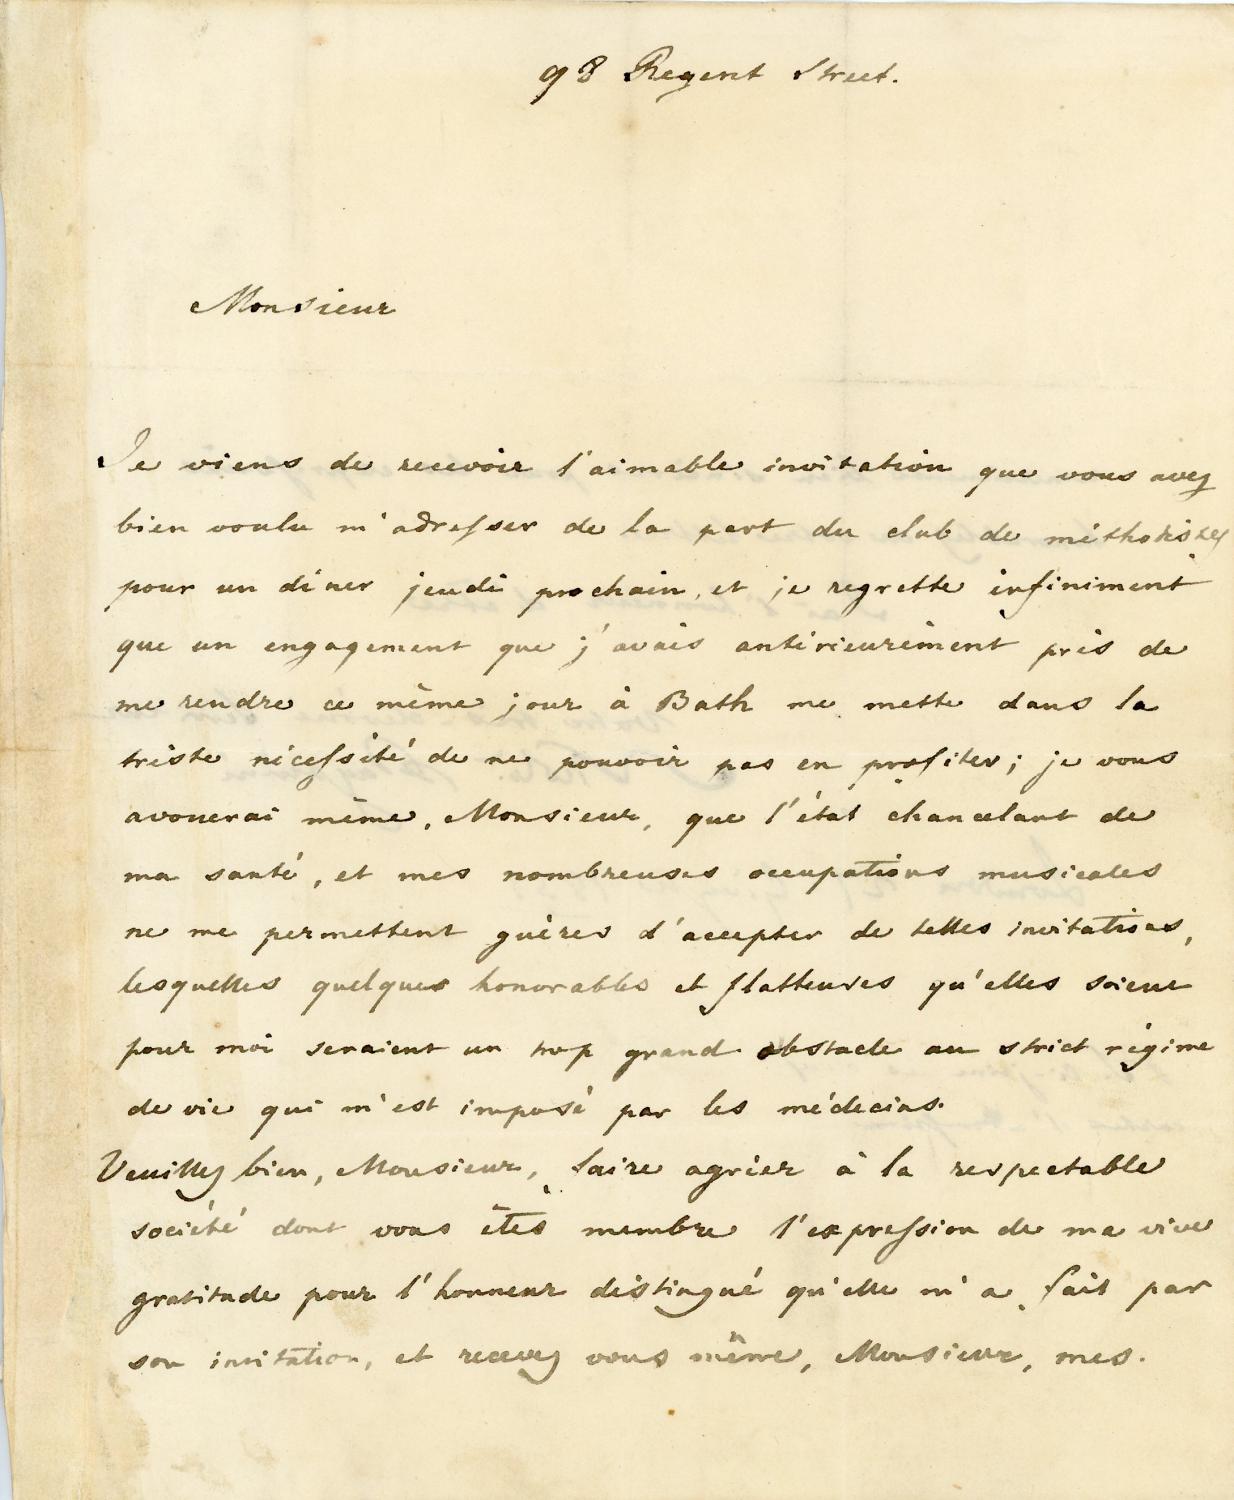 98 Regent Street.
Monsieur
Je viens de recevoir l'aimable invitation que vous avez
bien voulu m'adresser de la part du club de
pour un diner jeudi prochain, et je regrette infiniment
que un engagement que j'avais antérieurement pris de
me rendre ce même jour à Bath me mette dans la
triste nécessité de ne pouvoir pas en profiter; je vous
avouerai même, Monsieur, que l'état chancelant de
ma santé, et mes nombreuses occupations musicales
ne me permettent guères d'accepter de telles invitations,
lesquelles quelques honorables et flatteuses qu'elles soient
pour moi seraient un trop grand obstacle au strict régime
de vie qui m'est imposé par les médecins.
Veuillez bien, Monsieur, faire agréer à la respectable
société dont vous êtes membre l'expression de ma vive
gratitude pour l'honneur distingué qu'elle m'a fait par
son invitation, et recevez vous même, Monsieur, mes.